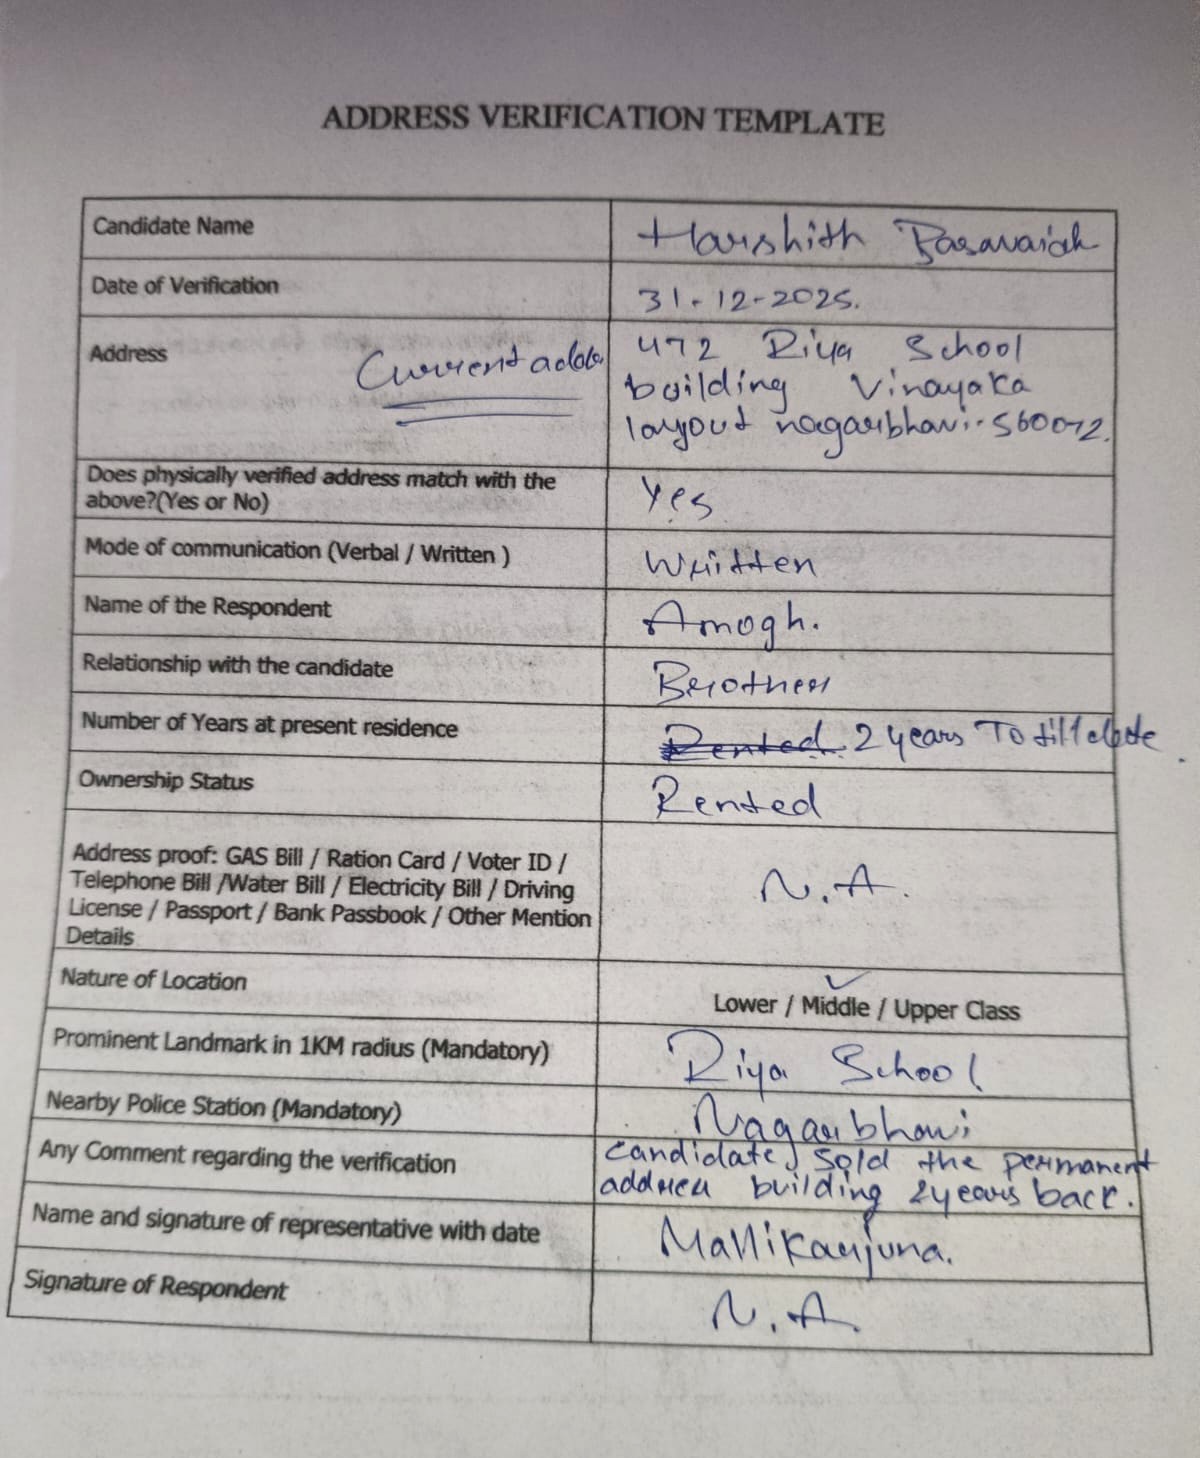 ADDRESS VERIFICATION TEMPLATE
Candidate Name
Harshith Basavaiah
Date of Verification
31-12-2025.
Address
Current addre
472 Riya School
building Vinayaka
layout nagarbhavi-560072.
Does physically verified address match with the
above?(Yes or No)
Yes
Mode of communication (Verbal / Written )
Written
Name of the Respondent
Amogh.
Relationship with the candidate
Brother
Number of Years at present residence
Rented 2 years To till date
Ownership Status
Rented
Address proof: GAS Bill / Ration Card / Voter ID /
Telephone Bill /Water Bill / Electricity Bill / Driving
License / Passport / Bank Passbook / Other Mention
Details
N.A.
Nature of Location
Lower / Middle / Upper Class
Prominent Landmark in 1KM radius (Mandatory)
Riya School
Nearby Police Station (Mandatory)
Nagarbhavi
Any Comment regarding the verification
Candidate sold the permanent
address building 2years back.
Name and signature of representative with date
Mallikarjuna.
Signature of Respondent
N.A.